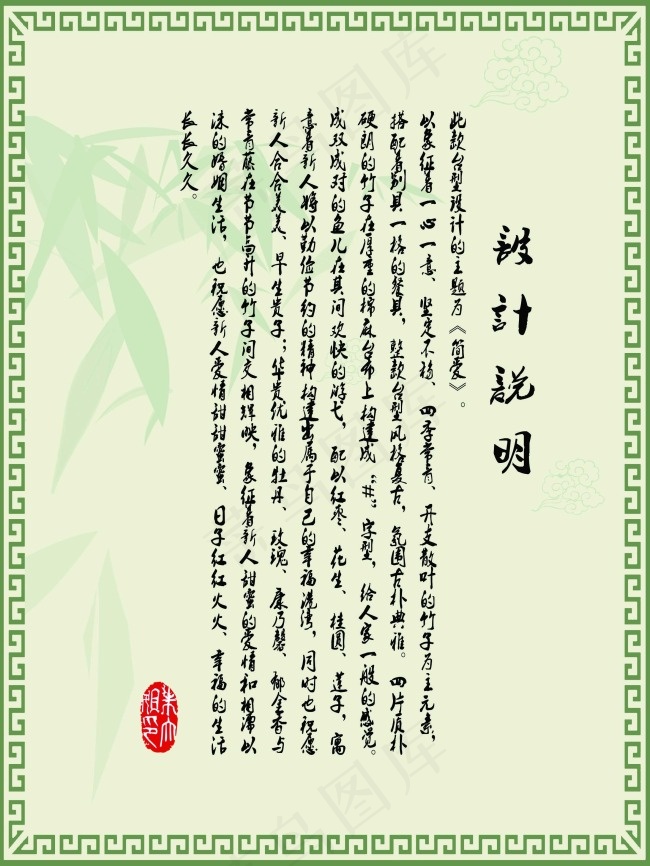 設計說明
此款台型设计的主题为《简爱》。
以象征着一心一意、坚定不移、四季常青、开支散叶的竹子为主元素，
搭配着别具一格的餐具，整款台型风格复古，氛围古朴典雅。四片质朴
硬朗的竹子在厚重的棉麻台布上构建成“井”字型，给人家一般的感觉。
成双成对的鱼儿在其间欢快的游弋，配以红枣、花生、桂圆、莲子，寓
意着新人将以勤俭节约的精神构建出属于自己的幸福港湾，同时也祝愿
新人合合美美、早生贵子；华贵优雅的牡丹、玫瑰、康乃馨、郁金香与
常青藤在节节高升的竹子间交相辉映，象征着新人甜蜜的爱情和相濡以
沫的婚姻生活，也祝愿新人爱情甜甜蜜蜜、日子红红火火、幸福的生活
长长久久。